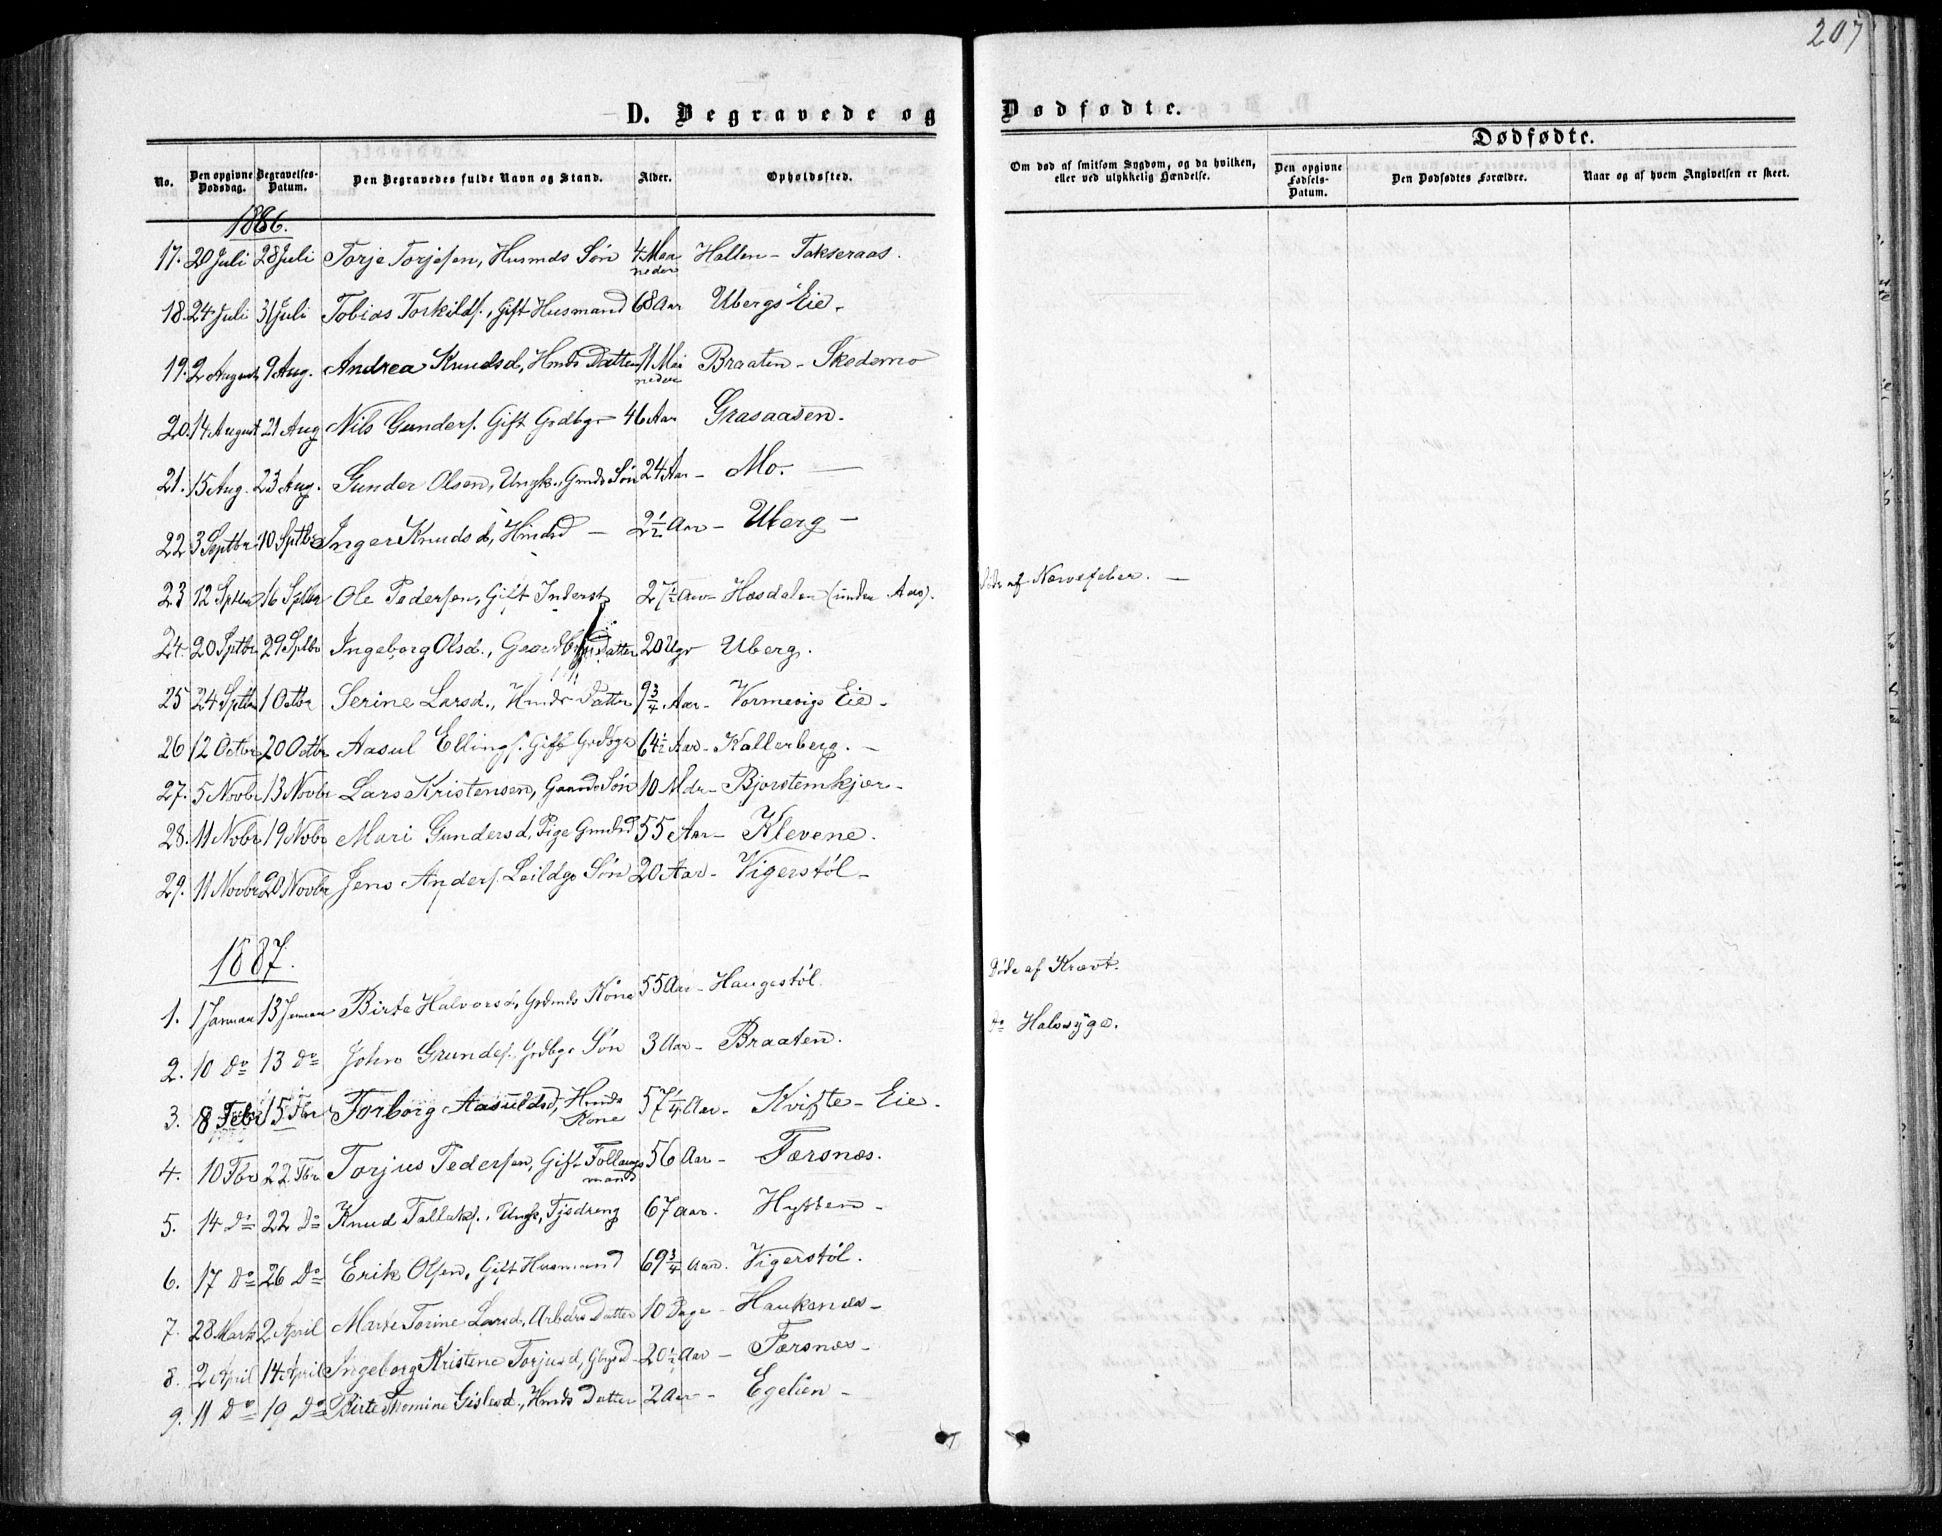 207
D. Begravede og Dødfødte.
No. Den opgivne Dødsdag. Begravelses-Datum. Den Begravedes fulde Navn og Stand. Alder. Opholdssted. Om død af smitsom Sygdom, og da hvilken, eller ved ulykkelig Hændelse. Dødfødte. Den opgivne Fødsels-Datum. Den Dødfødtes Forældre. Naar og af hvem Angivelsen er skeet.
1886.
17. 20 Juli 28 Juli Torje Torjesen, Husmds Søn 4 Maaneder Hallen - Takseraas.
18. 24 Juli 31 Juli Tobias Torkilds., Gift Husmand 68 Aar Ubergs Eie -
19. 2 August 9 Aug. Andrea Knudsd, Hmds Datter 11 Maaneder Braaten - Skedsmo
20. 14 August 21 Aug Nils Gunders. Gift Grdbgr - 46 Aar Grasaasen -
21. 15 Aug. 23 Aug. Gunder Olsen, Ungk., Gmds Søn 24 Aar - Mo. -
22 3 Septbr 10 Sptbr Inger Knudsd, Hmdsd - 2 1/2 Aar - Uberg -
23 12 Sptbr 16 Sptbr Ole Pedersen, Gift Inderst 27 1/2 Aar - Hasdalen (under Aas). Døde af Nervefeber. -
24. 20 Sptbr 29 Sptbr Ingeborg Olsd., Datter 20 Uger Uberg.
25 24 Sptbr 1 Octbr Serine Larsd., Hmds Datter 9 3/4 Aar - Vormevigs Eie -
26 12 Octbr 20 Octbr Aasul Ellings. Gift Grdbgr 64 1/2 Aar - Kallerberg. -
27. 5 Novbr 13 Novbr Lars Kristensen, Gaardm Søn 10 Mdr - Bjorstemkjær -
28. 11 Nobr 19 Nobr Mari Gundersd, Pige Gmdsd 55 Aar - Klevene.
29. 11 Novbr 20 Novbr Jens Anders. Leildgs Søn 20 Aar - Vigerstöl -
1887.
1. 1 Januar 13 Januar Birte Halvorsd, Grdmds Kone 55 Aar - Haugestöl. Døde af Kræft.
2. 10 do 13 do John Grundes., Grdbgs Søn 3 Aar - Braaten. do Halssyge.
3. 8 Febr 15 Fbr Torborg Aasuldsd, Hmds Kone 57 1/4 Aar - Kvifte - Eie.
4. 10 Fbr 22 Fbr Torjus Pedersen, Gift Follaugsmand 56 Aar - Færsnæs.
5. 14 do 22 do Knud Tallaks., Ungk, Tjsdreng 67 Aar. Hytten -
6. 17 do 26 do Erik Olsen, Gift Husmand 69 3/4 Aar. Vigerstöl.
7. 28 Marts 2 April Marte Torine Larsd, Arbdrs Datter 10 Dage - Hauksnæs -
8. 2 April 14 April Ingeborg Kristene Torjusd, Gbgsd - 20 1/2 Aar - Færsnæs -
9. 11 do 19 do Birte Tomine Gislesd., Hmds Datter 2 Aar - Egelien -